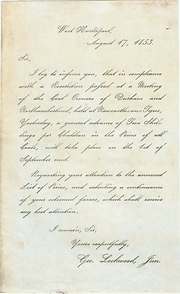 West Hartlepool,
August 17, 1853.
Sir,
I beg to inform you, that in compliance
with a Resolution passed at a Meeting
of the Coal Owners of Durham and
Northumberland, held at Newcastle-on-Tyne,
Yesterday, a general advance of Two Shil-
lings per Chaldron in the Prices of all
Coals, will take place on the 1st of
September next.
Requesting your attention to the annexed
List of Prices, and soliciting a continuance
of your esteemed favors, which shall receive
my best attention,
I remain, Sir,
Yours respectfully,
Geo.